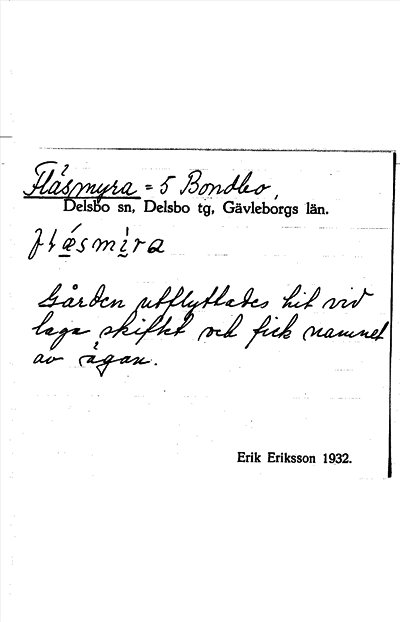 Flåsmyra = 5 Bondbo,
Delsbo sn, Delsbo tg, Gävleborgs län.
Gården utflyttades hit vid
laga skiftet och fick namnet
av ägan.
Erik Eriksson 1932.